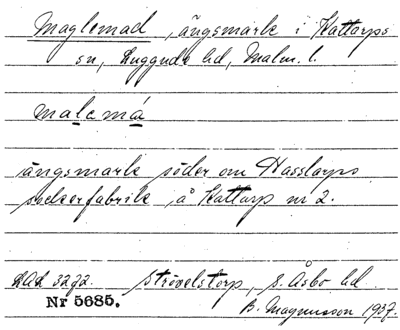 Maglemad, ängsmark i Kattarps
sn, Luggude hd, Malm. l.
malemá
ängsmark söder om Hasslarps
sockerfabrik, å Kattarp nr 2.
Strövelstorp, S. Åsbo hd
Nr 5685.
B. Magnusson 1937.